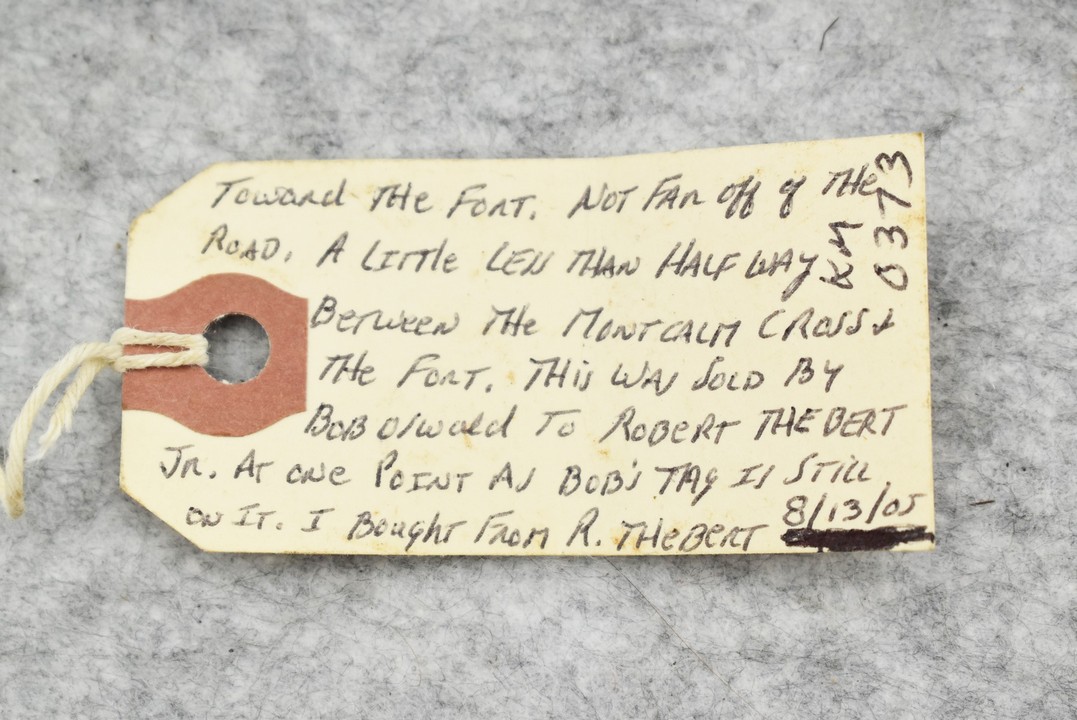 Toward THE FORT. NOT FAR off of THE
ROAD. A LITTLE LESS THAN HALF WAY
BETWEEN THE MONTCALM CROSS &
THE FORT. THIS WAS SOLD BY
BOB Oswald TO ROBERT THEBERT
JR. AT ONE POINT AS BOB'S TAG IS STILL
ON IT. I Bought FROM R. THEBERT 8/13/05
KM
0373